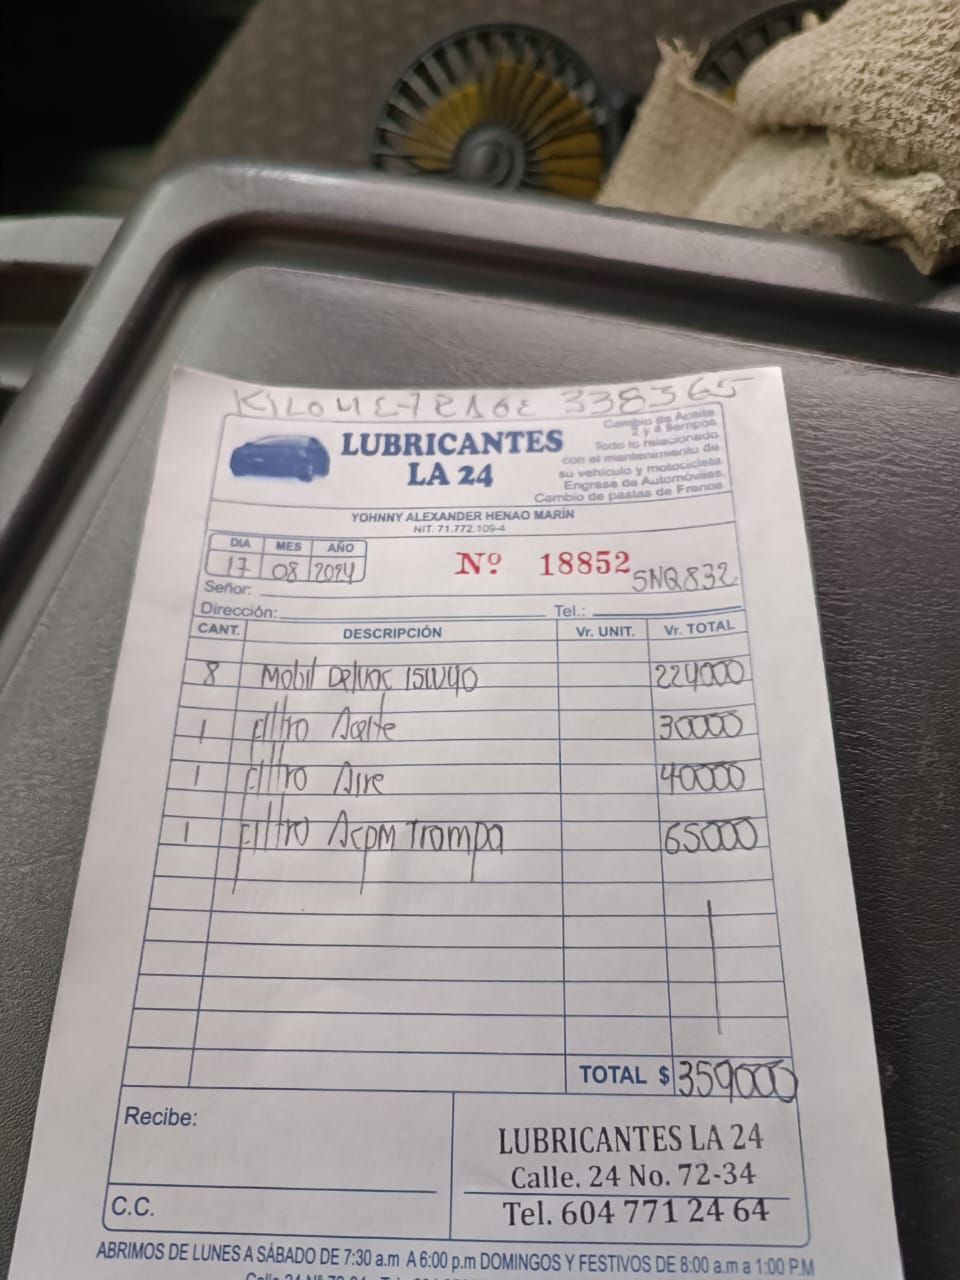 KILOMETRAGE 338365
LUBRICANTES
LA 24
Cambio de Aceite
2 y 4 tiempos
Todo lo relacionado
con el mantenimiento de
su vehículo y motocicleta
Engrase de Automóviles.
Cambio de pastas de Frenos
YOHNNY ALEXANDER HENAO MARÍN
NIT. 71.772.109-4
DIA MES AÑO
17 08 2024
Nº 18852
SNQ832
Señor:
Dirección: Tel.:
CANT. DESCRIPCIÓN Vr. UNIT. Vr. TOTAL
8 Mobil Delvac 15W40 224000
1 Filtro Aceite 30000
1 Filtro Aire 40000
1 Filtro Acpm Trampa 65000
TOTAL $ 359000
Recibe:
C.C.
LUBRICANTES LA 24
Calle. 24 No. 72-34
Tel. 604 771 24 64
ABRIMOS DE LUNES A SÁBADO DE 7:30 a.m A 6:00 p.m DOMINGOS Y FESTIVOS DE 8:00 a.m a 1:00 P.M